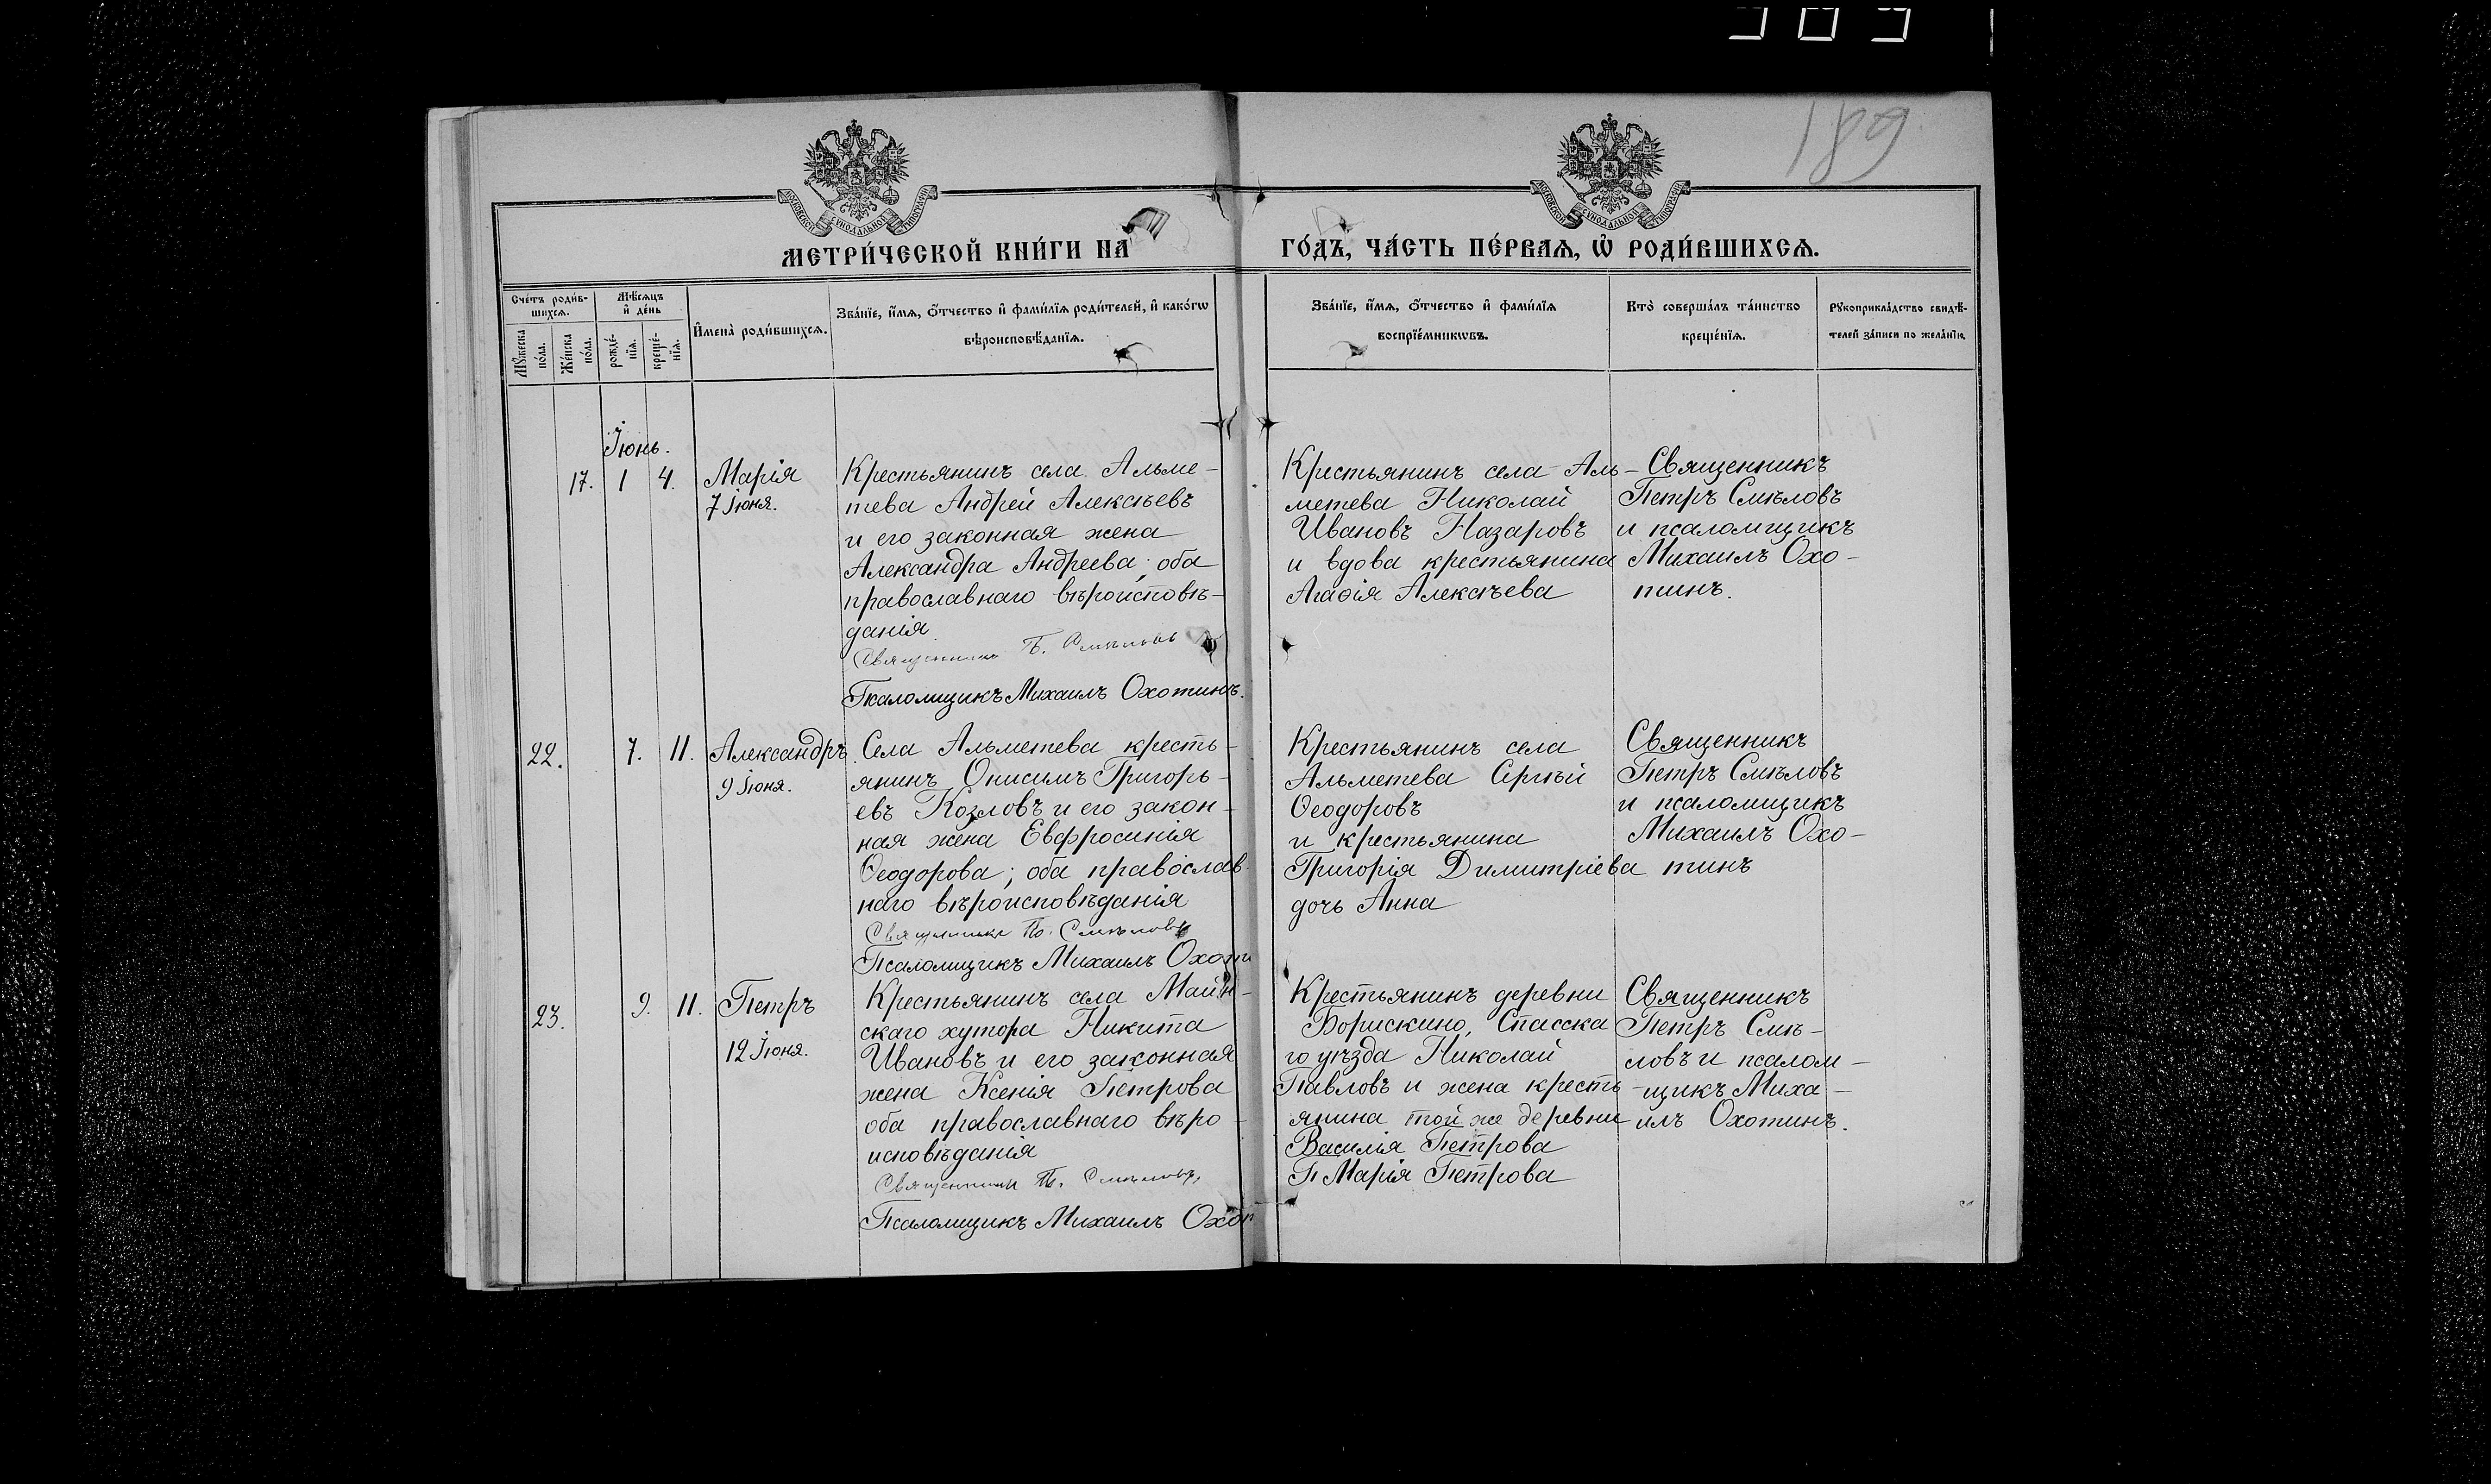 189
МОСКОВСКОЙ СѴНОДАЛЬНОЙ ТИПОГРАФІИ
МОСКОВСКОЙ СѴНОДАЛЬНОЙ ТИПОГРАФІИ
МЕТРИ́ЧЕСКОЙ КНИ́ГИ НА
ГО́ДЪ, ЧА́СТЬ ПЕ́РВАѦ, Ѽ РОДИ́ВШИХСѦ.
Сче́тъ роди́в-
шихсѧ.
Мꙋ́жеска
по́ла.
Же́нска
по́ла.
Мѣ́сѧцъ
и҆ де́нь
рожде́-
нїѧ.
креще́-
нїѧ.
И҆мена̀ роди́вшихсѧ.
Зва́нїе, и҆́мѧ, ѻ҆́тчество и҆ фами́лїѧ роди́телей, и҆ како́гѡ
вѣроисповѣ́данїѧ.
Зва́нїе, и҆́мѧ, ѻ҆́тчество и҆ фами́лїѧ
воспрїе́мникѡвъ.
Кто̀ соверша́лъ та́инство
креще́нїѧ.
Рꙋкоприкла́дство свидѣ́-
телей за́писи по жела́нїю.
Іюнь.
17. 1 4.
Марія
7 Іюня.
Крестьянинъ села Альме-
тева Андрей Алексѣевъ
и его законная жена
Александра Андреева; оба
православнаго вѣроисповѣ-
данія.
Священникъ П. Смѣловъ
Псаломщикъ Михаилъ Охотинъ.
Крестьянинъ села Аль-
метева Николай
Ивановъ Назаровъ
и вдова крестьянина
Агаѳія Алексѣева
Священникъ
Петръ Смѣловъ
и псаломщикъ
Михаилъ Охо-
тинъ.
22. 7. 11.
Александръ
9 Іюня.
Села Альметева кресть-
янинъ Онисимъ Григорь-
евъ Козловъ и его закон-
ная жена Евфросинія
Ѳеодорова; оба православ-
наго вѣроисповѣданія
Священникъ П. Смѣловъ
Псаломщикъ Михаилъ Охоти
Крестьянинъ села
Альметева Сергѣй
Ѳеодоровъ
и крестьянина
Григорія Димитріева
дочь Анна
Священникъ
Петръ Смѣловъ
и псаломщикъ
Михаилъ Охо-
тинъ
23. 9. 11.
Петръ
12 Іюня.
Крестьянинъ села Майн-
скаго хутора Никита
Ивановъ и его законная
жена Ксенія Петрова
оба православнаго вѣро-
исповѣданія
Священникъ П. Смѣловъ
Псаломщикъ Михаилъ Охот
Крестьянинъ деревни
Борискино, Спасска
го уѣзда Николай
Павловъ и жена кресть-
янина той же деревни
Василія Петрова
Марія Петрова
Священникъ
Петръ Смѣ-
ловъ и псалом-
щикъ Миха-
илъ Охотинъ.